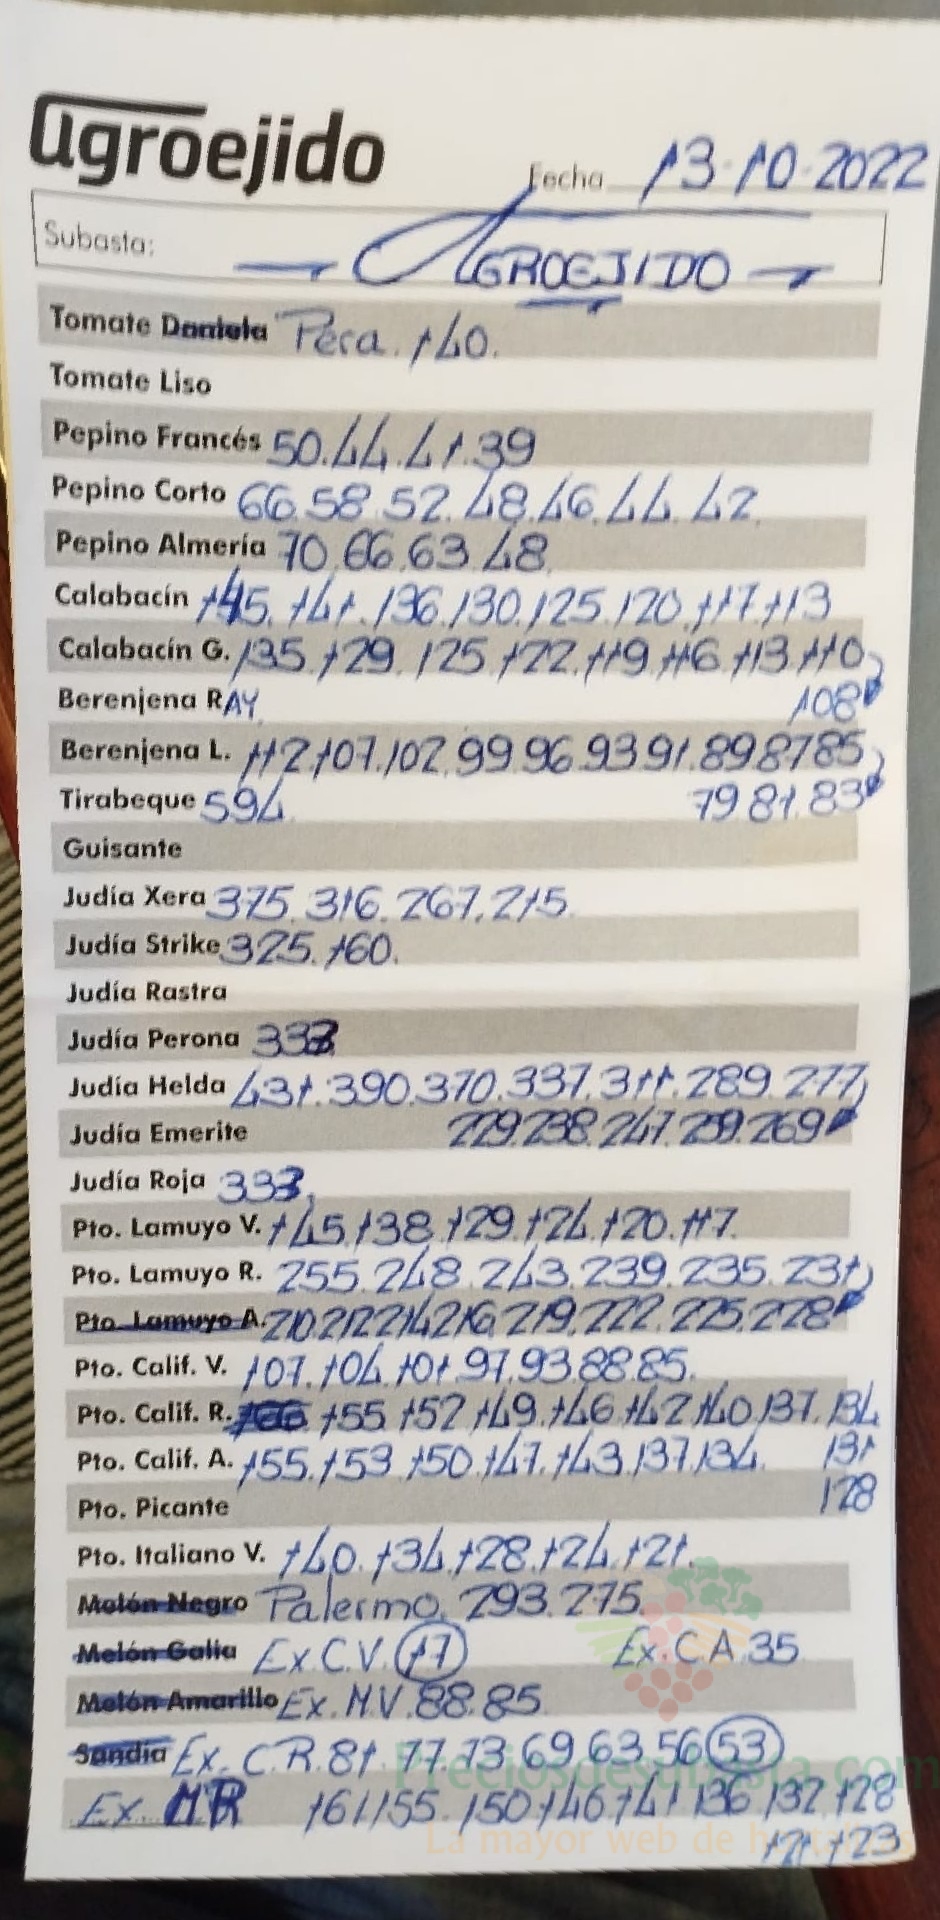 agroejido
Fecha 13-10-2022
Subasta: AGROEJIDO
Tomate Daniela Pera. 140.
Tomate Liso
Pepino Francés 50.44.41.39
Pepino Corto 66.58.52.48.46.44.42.
Pepino Almería 70.66.63.48.
Calabacín 145.141.136.130.125.120.117.113
Calabacín G. 135.129.125.122.119.116.113.110
Berenjena RAY 108
Berenjena L. 112.107.102.99.96.93.91.89.87.85
Tirabeque 594 79.81.83
Guisante
Judía Xera 375.316.267.215.
Judía Strike 325.160.
Judía Rastra
Judía Perona 333
Judía Helda 431.390.370.337.311.289.277
Judía Emerite 229.238.247.259.269
Judía Roja 333.
Pto. Lamuyo V. 145.138.129.124.120.117.
Pto. Lamuyo R. 255.248.243.239.235.231
Pto. Lamuyo A. 210.212.214.216.219.222.225.228
Pto. Calif. V. 107.104.101.97.93.88.85.
Pto. Calif. R. 155.152.149.146.142.140.137.134
Pto. Calif. A. 155.153.150.147.143.137.134. 131
Pto. Picante 128
Pto. Italiano V. 140.134.128.124.121.
Melón Negro Palermo. 293.275.
Melón Galia Ex.C.V. 17 Ex.C.A.35
Melón Amarillo Ex.M.V.88.85.
Sandía Ex.C.R.81.77.73.69.63.56 53
Ex. MR 161.155.150.146.141.136.132.128
121.123
Preciosdesubasta.com
La mayor web de